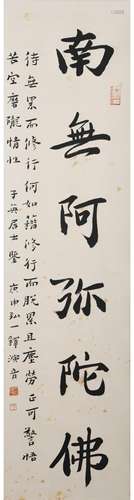 南無阿弥陀佛
待無累而修行何如藉修行而脫累且塵勞正可警悟
苦空磨礲情性 子英居士鑒 庚申弘一釋演音